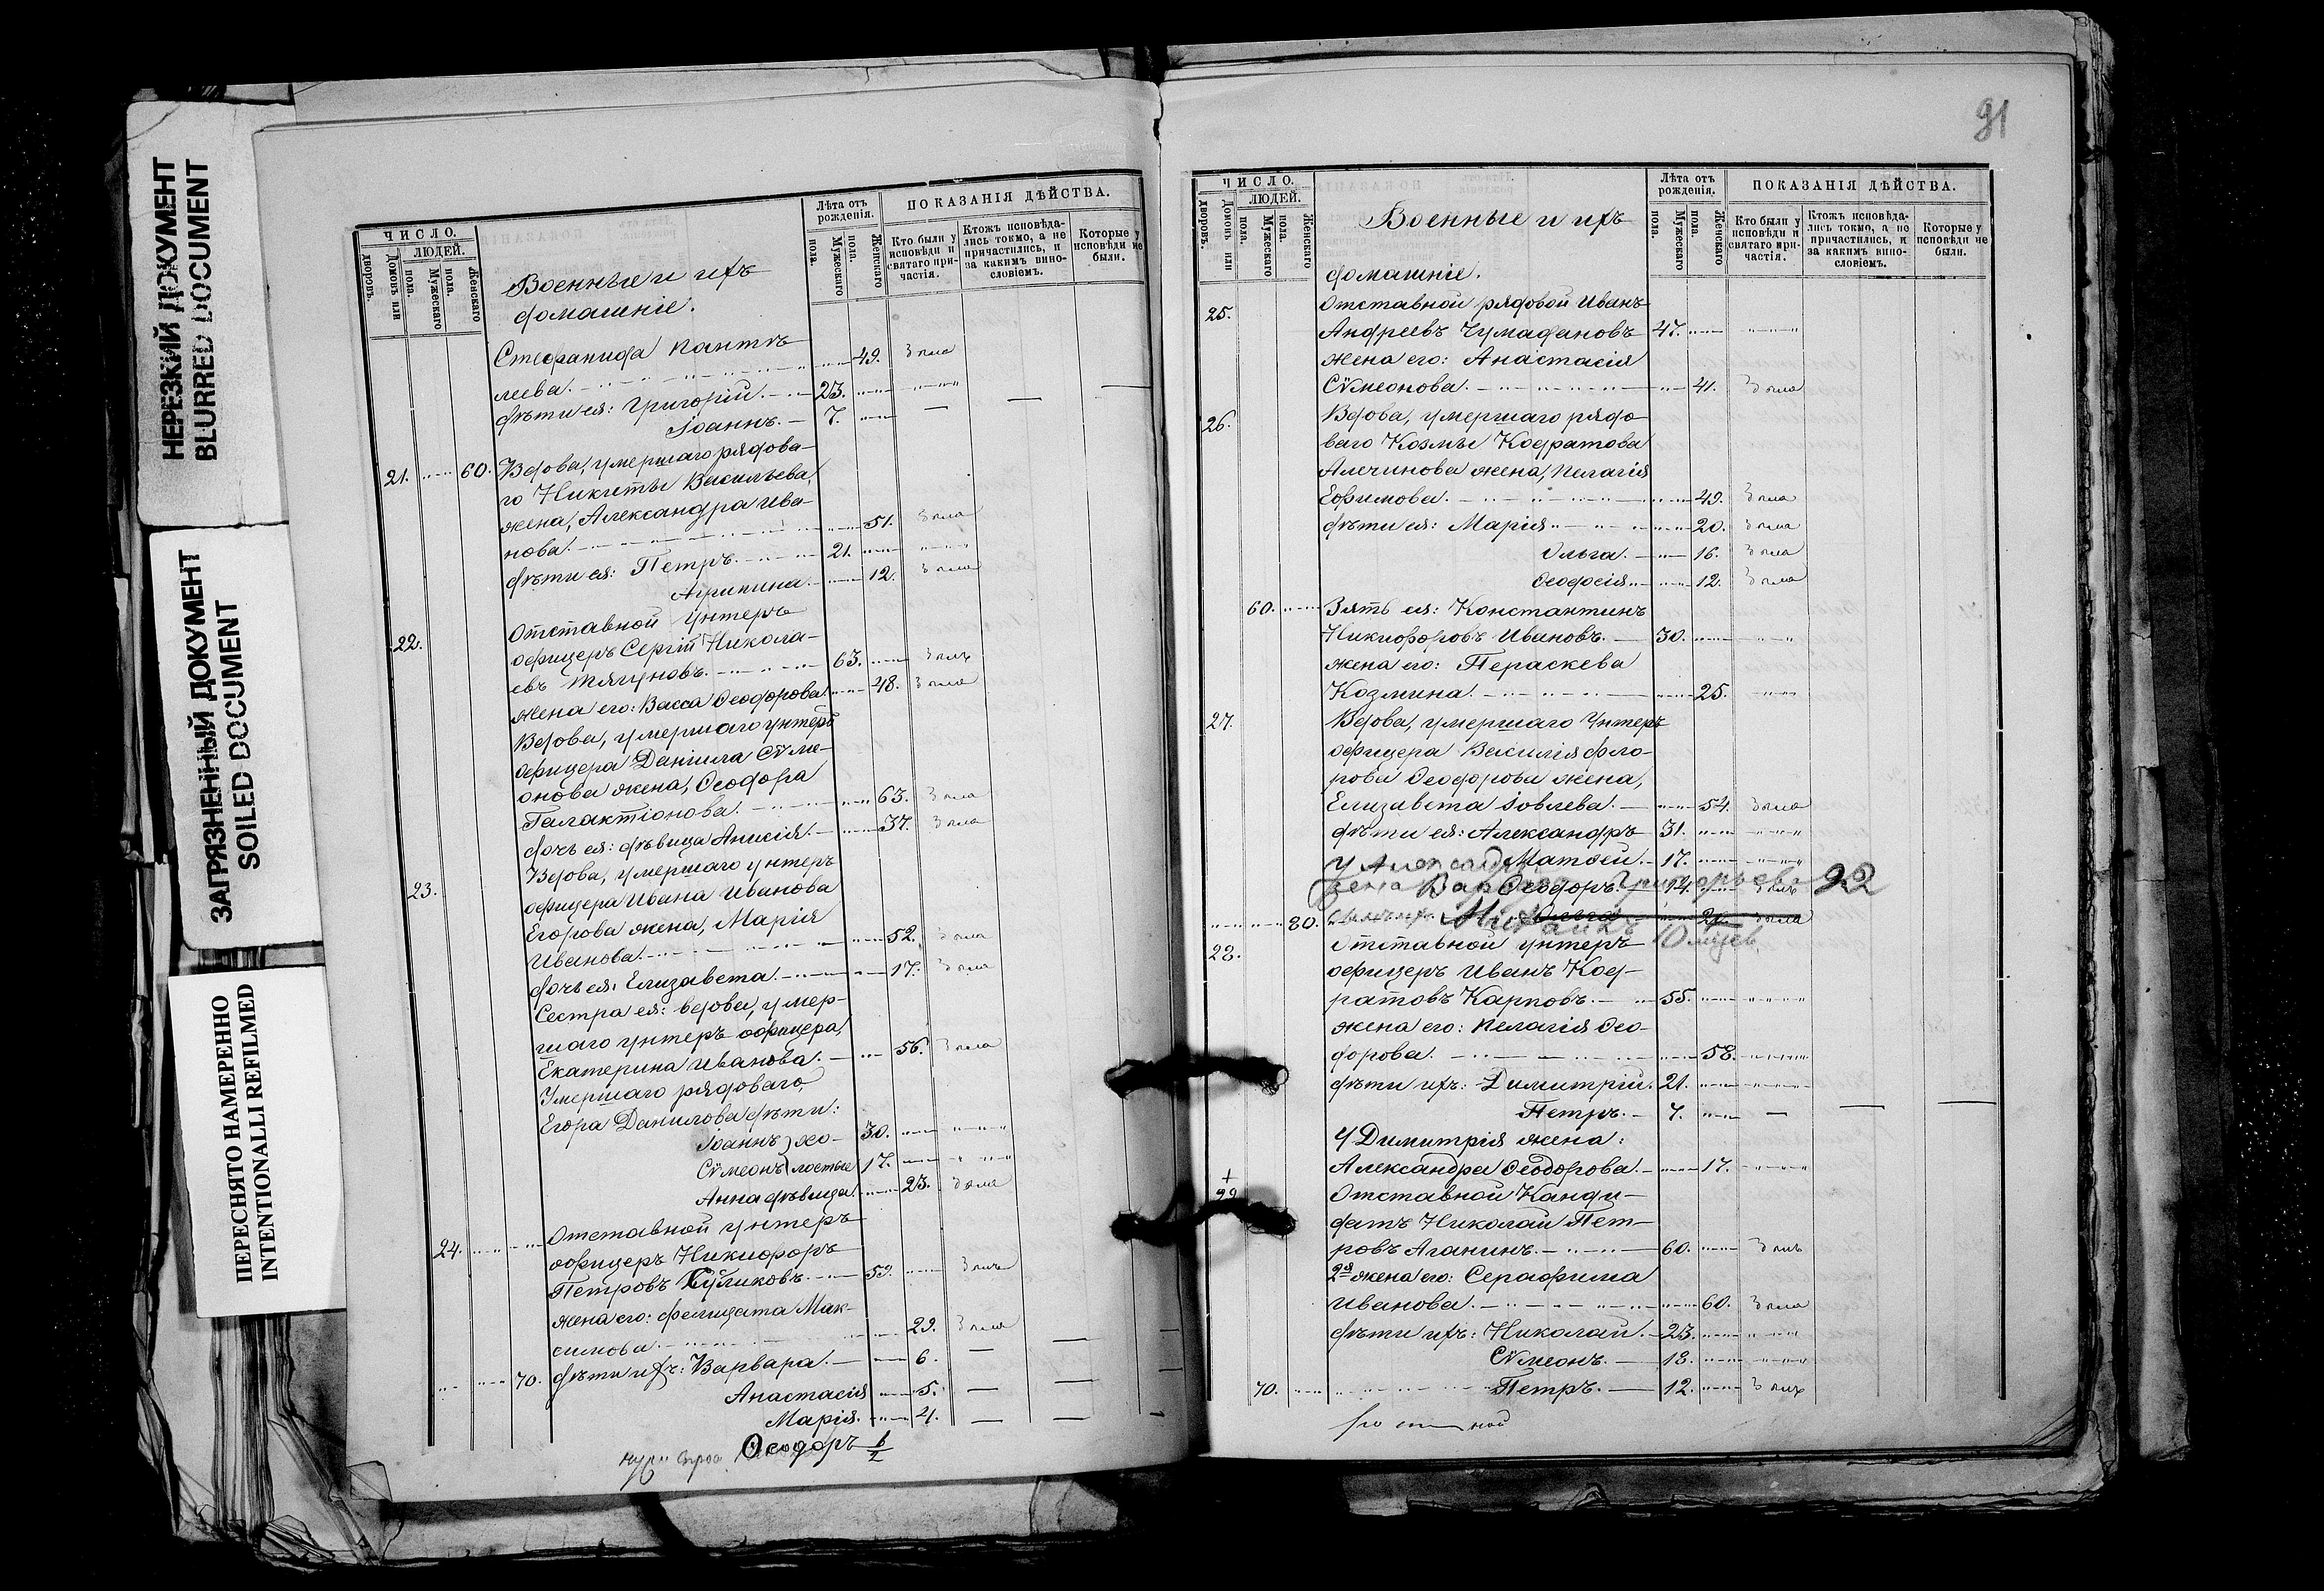 НЕРЕЗКИЙ ДОКУМЕНТ
BLURRED DOCUMENT
ЗАГРЯЗНЕННЫЙ ДОКУМЕНТ
SOILED DOCUMENT
ПЕРЕСНЯТО НАМЕРЕННО
INTENTIONALLI REFILMED
ЧИСЛО.
ЛЮДЕЙ.
Домовъ или дворовъ.
Мужескаго пола.
Женскаго пола.
Военные и ихъ
домашніе.
Лѣта отъ рожденія.
Мужескаго пола.
Женскаго пола.
ПОКАЗАНІЯ ДѢЙСТВА.
Кто были у исповѣди и святаго причастія.
Ктожъ исповѣдались токмо, а не причастились, и за какимъ винословіемъ.
Которые у исповѣди не были.
Стефанида Пантѣ-
леева. 49.
дѣти ея: Григорій. 23.
Іоаннъ. 7.
21. 60. Вдова, умершаго рядова-
го Никиты Васильева,
жена, Александра Ива-
нова. 51.
дѣти ея: Петръ. 21.
Агрипина. 12.
22. Отставной Унтеръ
офицеръ Сергій Никола-
евъ Тягуновъ. 63.
жена его: Васса Ѳеодорова. 48.
Вдова, умершаго унтеръ
офицера Даніила Сѵме-
онова жена, Ѳеодора
Галактіонова. 63.
дочь ея: дѣвица Анисія. 37.
23. Вдова, умершаго унтеръ
офицера Ивана Иванова
Егорова жена, Марія
Иванова. 52.
дочь ея: Елизавета. 17.
Сестра ея: вдова, умер-
шаго унтеръ офицера,
Екатерина Иванова. 56.
Умершаго рядоваго
Егора Данилова дѣти:
Іоаннъ хо- 30.
Сѵмеонъ лостые 17.
Анна дѣвица. 23.
24. Отставной унтеръ
офицеръ Никифоръ
Петровъ Куликовъ. 59.
жена его: Фелицата Мак-
симова. 29.
70. дѣти ихъ: Варвара. 6.
Анастасія 5.
Марія. 4.
Ѳеодоръ 1/2
91
ЧИСЛО.
ЛЮДЕЙ.
Домовъ или дворовъ.
Мужескаго пола.
Женскаго пола.
Военные и ихъ
домашніе.
Лѣта отъ рожденія.
Мужескаго пола.
Женскаго пола.
ПОКАЗАНІЯ ДѢЙСТВА.
Кто были у исповѣди и святаго причастія.
Ктожъ исповѣдались токмо, а не причастились, и за какимъ винословіемъ.
Которые у исповѣди не были.
25. Отставной рядовой Иванъ
Андреевъ Чумадановъ 47.
жена его: Анастасія
Сѵмеонова. 41.
26. Вдова, умершаго рядо-
ваго Козмы Кодратова
Алечинова жена, Пелагія
Ефимова. 49.
дѣти ея: Марія 20.
Ольга. 16.
Ѳеодосія 12.
60. Зять ея: Константинъ
Никифоровъ Ивановъ. 30.
жена его: Пераскева
Козмина. 25.
27. Вдова, умершаго Унтеръ
офицера Василія Фло-
рова Ѳеодорова жена,
Елизавета Іовлева. 54.
дѣти ея: Александръ 31.
Матѳей. 17.
У Александра
жена Варвара Григорьева 22
Ѳеодоръ. 14.
80. Михаилъ 10 мѣсяц.
Ольга 20.
28. Отставной унтеръ
офицеръ Иванъ Код-
ратовъ Карповъ. 55.
жена его: Пелагія Ѳео-
дорова. 58.
дѣти ихъ: Димитрій. 21.
Петръ. 7.
У Димитрія жена:
Александра Ѳеодорова. 17.
29. Отставной Канди-
датъ Николай Пет-
ровъ Аганинъ. 60.
2я жена его: Серафима
Иванова. 60.
дѣти ихъ: Николай. 23.
Сѵмеонъ. 18.
70. Петръ. 12.